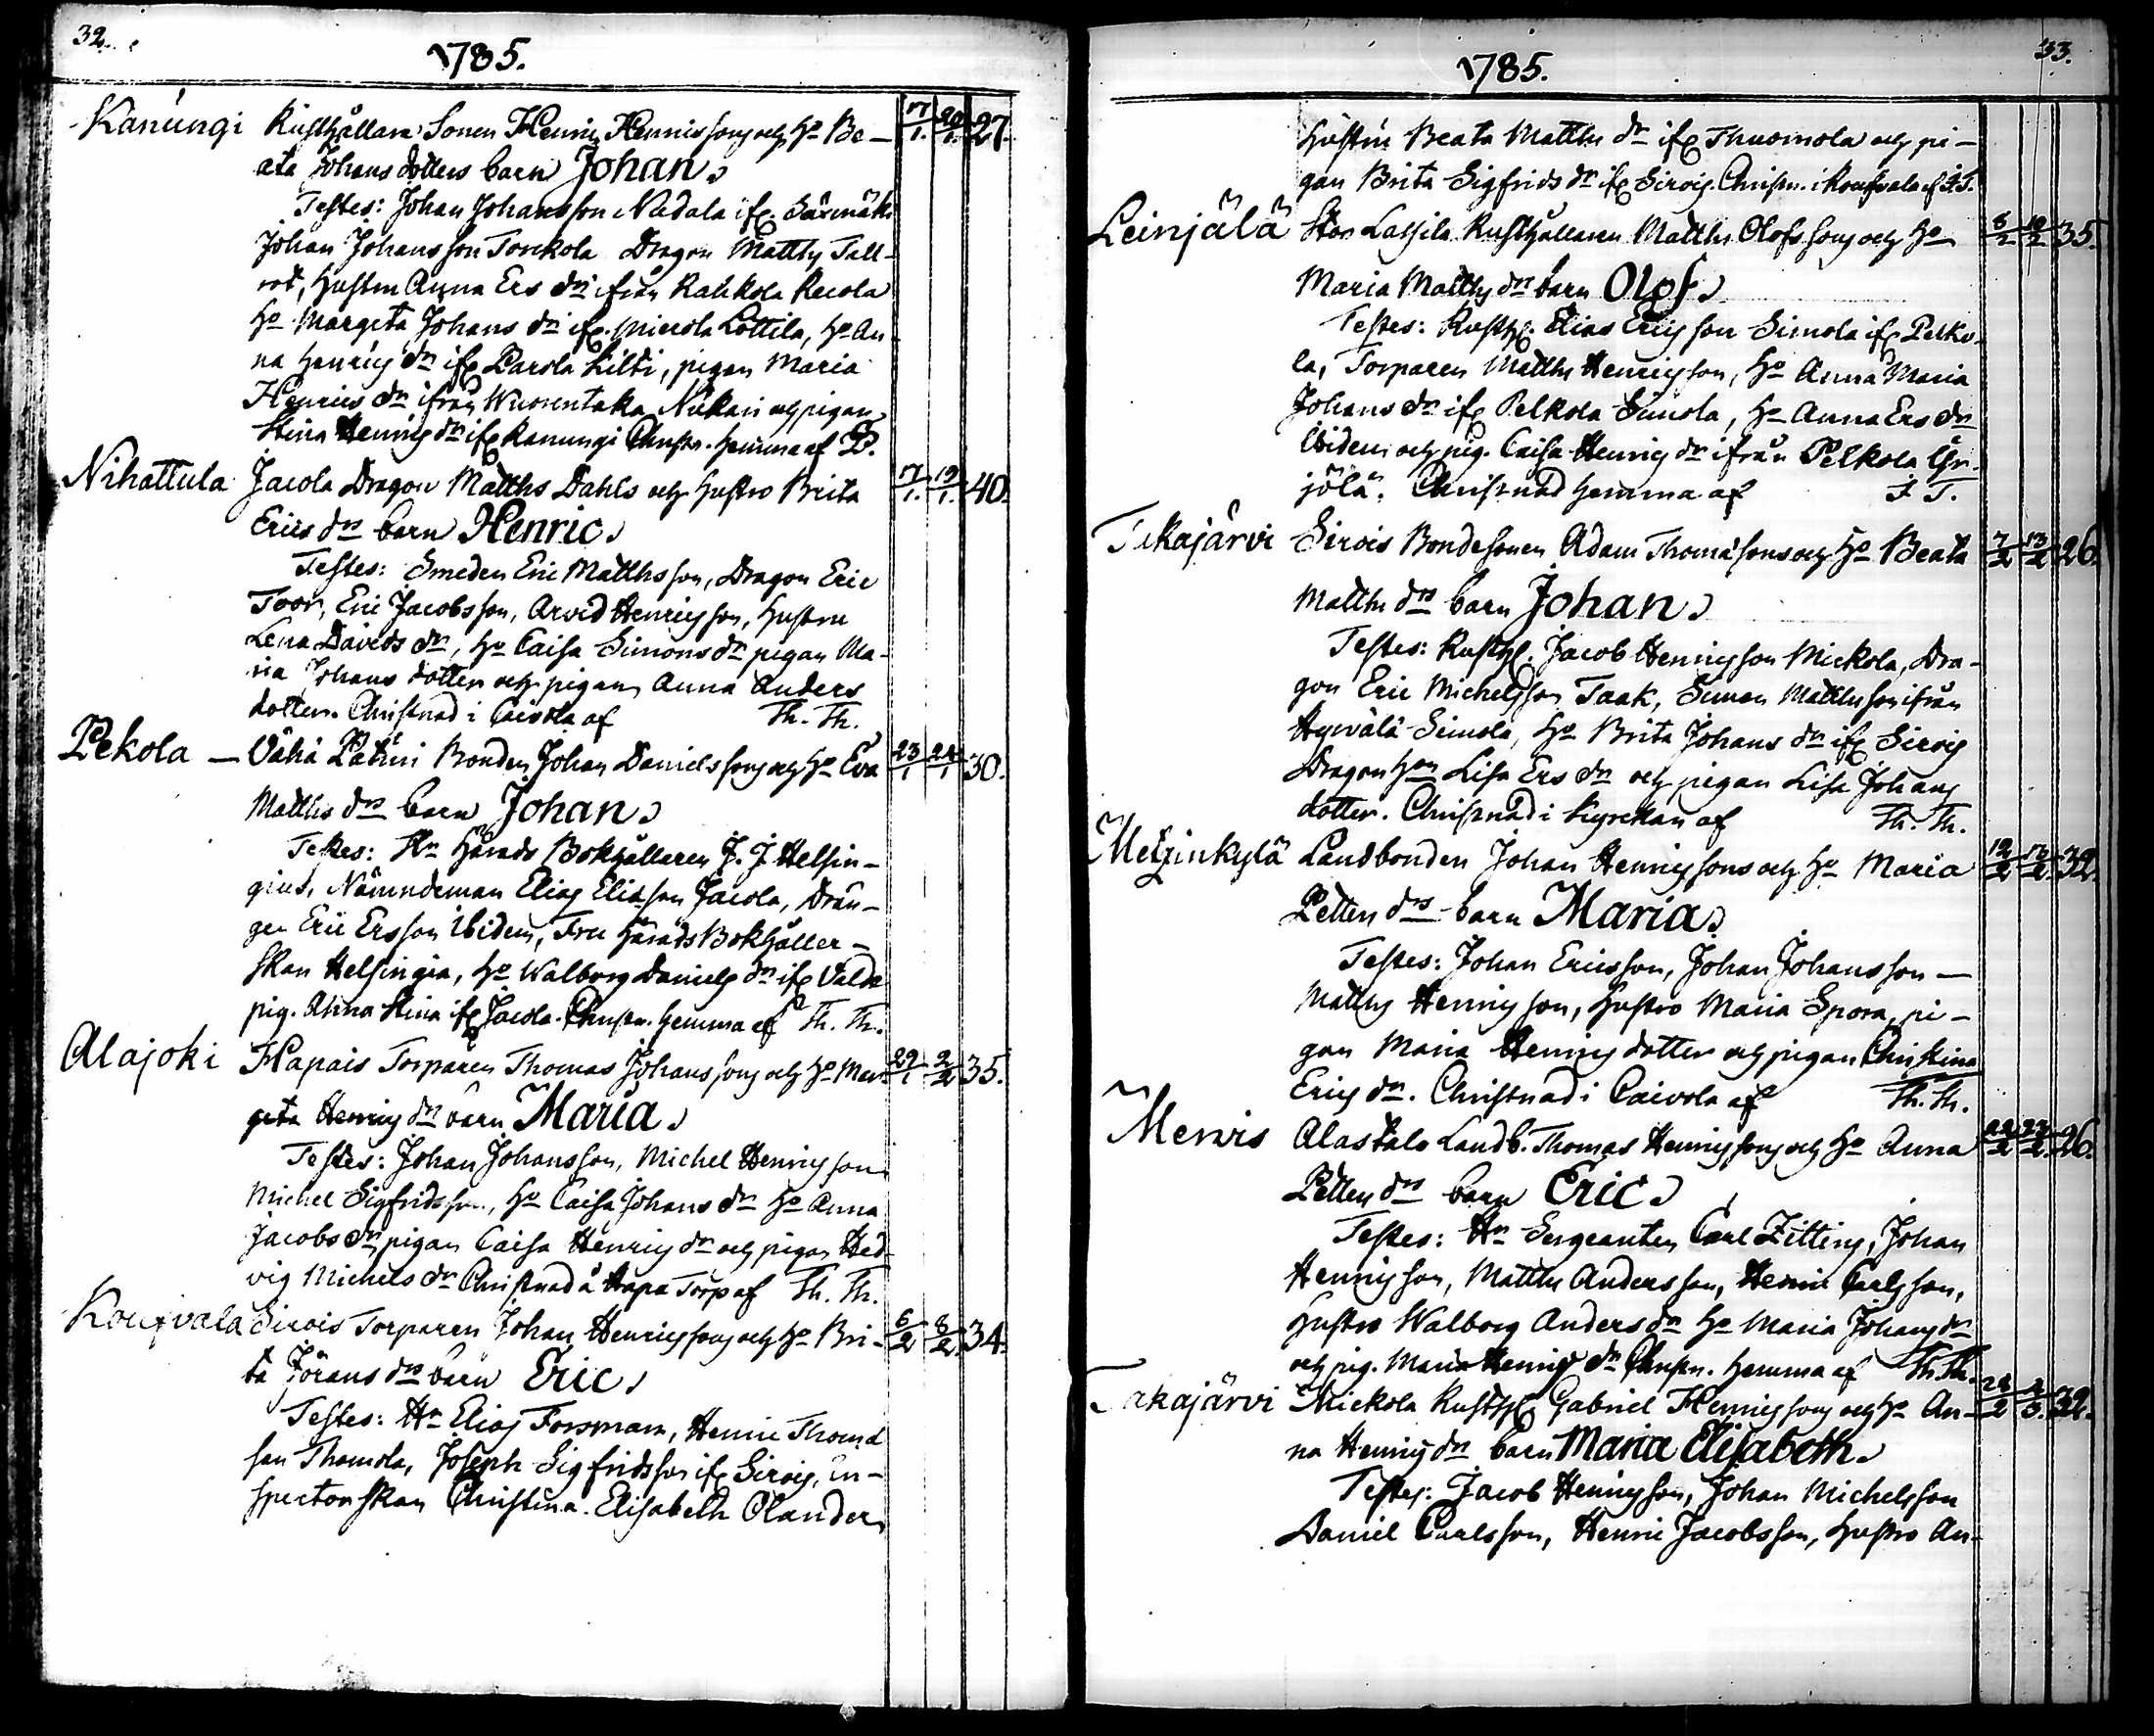 32.
1785.
Kanungi Rusthållare Sonen Henric Henricssons och Ho Be- 17/1. 20/1. 27.
ata Johans dotters barn Johan.
Testes: Johan Johansson Nadala ifr. Särmäki
Johan Johansson Torckola Dragon Matths Tall-
rot, Hustru Anna Ers dr ifrån Rahkola Recola
Ho Margeta Johans dr ifr. Miecola Lottila, Ho An-
na Henrics dr ifr Parola Kilti, pigan Maria
Henrics dr ifrån Wuorentaka Nikari och pigan
Stina Henrics dr ifr Kanungi Christn. hemma af
Nihattula Jacola Dragon Matths Dahls och Hustro Brita 17/1. 19/1. 40.
Erics drs barn Henric.
Testes: Smeden Eric Matthsson, Dragon Eric
Toor, Eric Jacobsson, Arvid Henricsson, Hustru
Lena Davids dr, Ho Caisa Simons dr pigan Ma-
ria Johans dotter och pigan Anna Anders
dotter. Christnad i Caivola af Th. Th.
Pekola — Vähä Pätäri Bonden Johan Daniels sons och Ho Eva 23/1 24/1 30.
Matths drs barn Johan.
Testes: Hr Härads Bokhållaren J. J. Helsin-
gius, Nämndeman Elias Eliasson Jacola, Drän-
gen Eric Ersson Ibidem, Fru Härads Bokhåller-
skan Helsingia, Ho Walborg Daniels dr ifr
pig. Anna Stina ifr Jacola. Christn. hemma af Th. Th.
Alajoki Hapais Torparen Thomas Johanssons och Ho Mar- 29/1 2/2 35.
geta Henrics drs barn Maria.
Testes: Johan Johansson, Michel Henricsson
Michel Sigfridsson, Ho Caisa Johans dr Ho Anna
Jacobs dr, pigan Caisa Henrics dr och pigan Hed-
vig Michels dr Christnad å Hapa Torp af Th. Th.
Kouxvala Sirois Torparen Johan Henricssons och Ho Bri- 6/2 8/2 34.
ta Jörans drs barn Eric.
Testes: Hr Elias Forsman, Henric Thomas
son Thomola, Joseph Sigfridsson ifr Sirois, in-
spectorskan Christina Elisabeth Olander
33.
1785.
Hustru Beata Matths dr ifr Thuomola och pi-
gan Brita Sigfrids dr ifr Sirois. Christn. i Kouxvala af F. T.
Leinjälä Stor Lassila Rusthållaren Matths Olofssons och Ho 8/2 10/2 35.
Maria Matths drs barn Olof.
Testes: Rusth. Elias Ericsson Simola ifr Pelko-
la, Torparen Matths Henricsson, Ho Anna Maria
Johans dr ifr Pelkola Simola, Ho Anna Ers dr
Ibidem och pig. Caisa Henrics dr ifrån Pelkola Yr-
jölä. Christnad hemma af F. T.
Takajärvi Sirois Bondesonen Adam Thomæ sons och Ho Beata 7/2 13/2 26.
Matths drs barn Johan.
Testes: Rusth. Jacob Henricsson Mickola, Dra-
gon Eric Michelsson Taak, Simon Matthsson ifrån
Hyvälä Simola, Ho Brita Johans dr ifr Sirois
Dragon Hon Lisa Ers dr och pigan Lisa Johans
dotter. Christnad i kyrckan af Th. Th.
Metzinkylä Landbonden Johan Henricssons och Ho Maria 12/2 13/2. 32.
Petters drs barn Maria.
Testes: Johan Ericsson, Johan Johansson —
Matths Henricsson, Hustro Maria Spora, pi-
gan Maria Henrics dotter och pigan Christina
Erics dr. Christnad i Caivola af Th. Th.
Mervis Alastalo Landb. Thomas Henricssons och Ho Anna 22/2 23/2. 26.
Petters drs barn Eric.
Testes: Hr Sergeanten Carl Zitting, Johan
Henricsson, Matths Andersson, Henric Carlsson,
Hustro Walborg Anders dr Ho Maria Johans dr
och pig. Maria Henrics dr Christn. hemma af Th. Th.
Takajärvi Mickola Rusth. Gabriel Henricssons och Ho An- 28/2 2/3. 32.
na Henrics drs barn Maria Elisabeth.
Testes: Jacob Henricsson, Johan Michelsson
Daniel Carlsson, Henric Jacobsson, Hustro An-